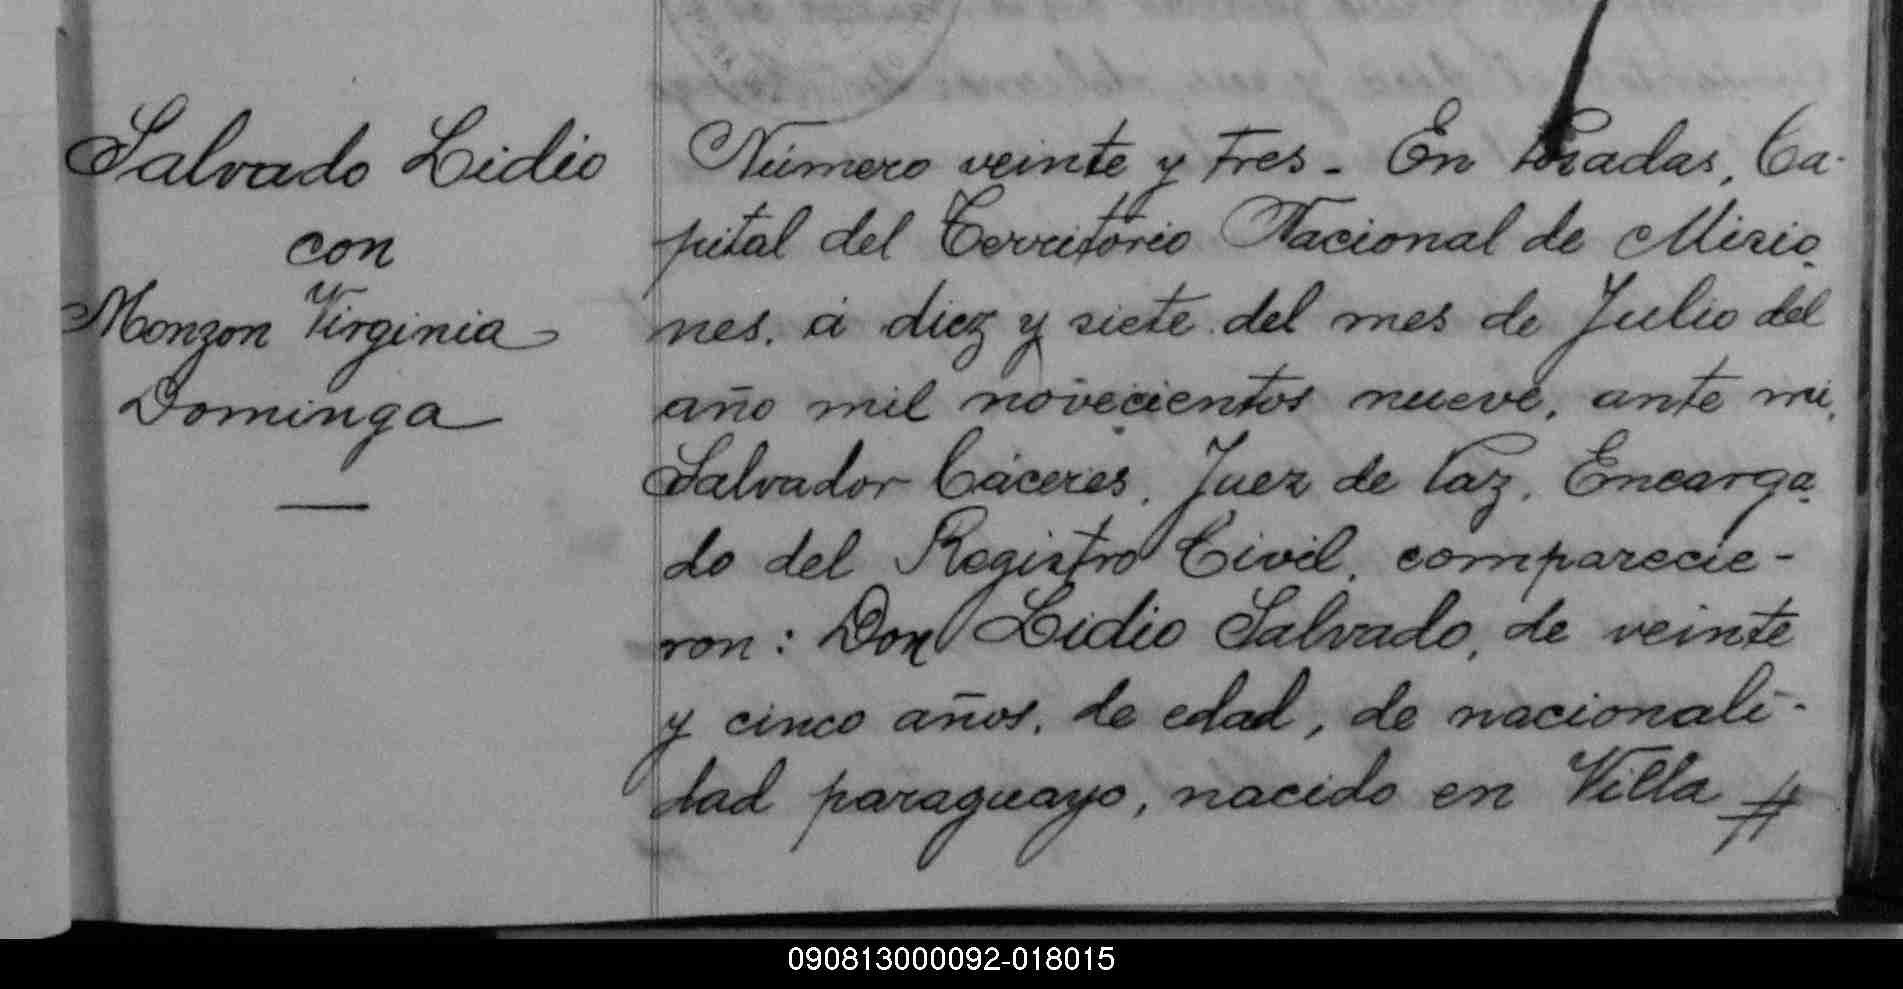 Salvado Lidio
con
Monzon Virginia
Dominga
Número veinte y tres - En Posadas, Ca-
pital del Territorio Nacional de Misio-
nes. á diez y siete del mes de Julio del
año mil novecientos nueve, ante mi,
Salvador Cáceres, Juez de Paz, Encarga-
do del Registro Civil, comparecie-
ron: Don Lidio Salvado, de veinte
y cinco años, de edad, de nacionali-
dad paraguayo, nacido en Villa #
090813000092-018015